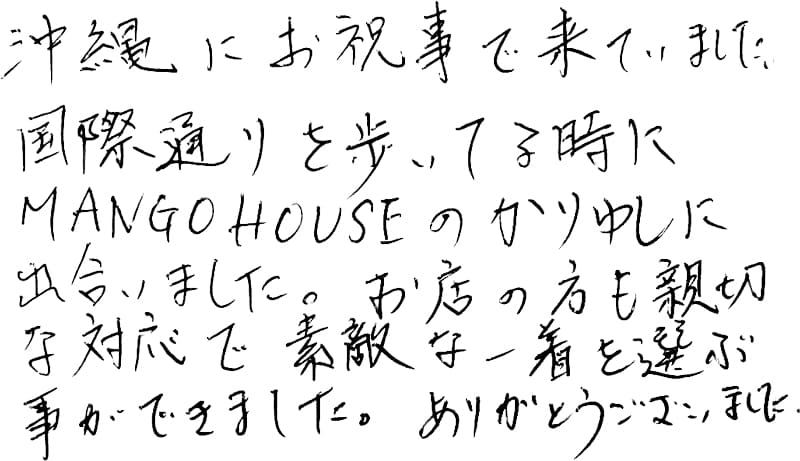 沖縄にお祝事で来ていました
国際通りを歩いてる時に
MANGO HOUSEのかりゆしに
出合いました。お店の方も親切
な対応で素敵な一着を選ぶ
事ができました。ありがとうございました.